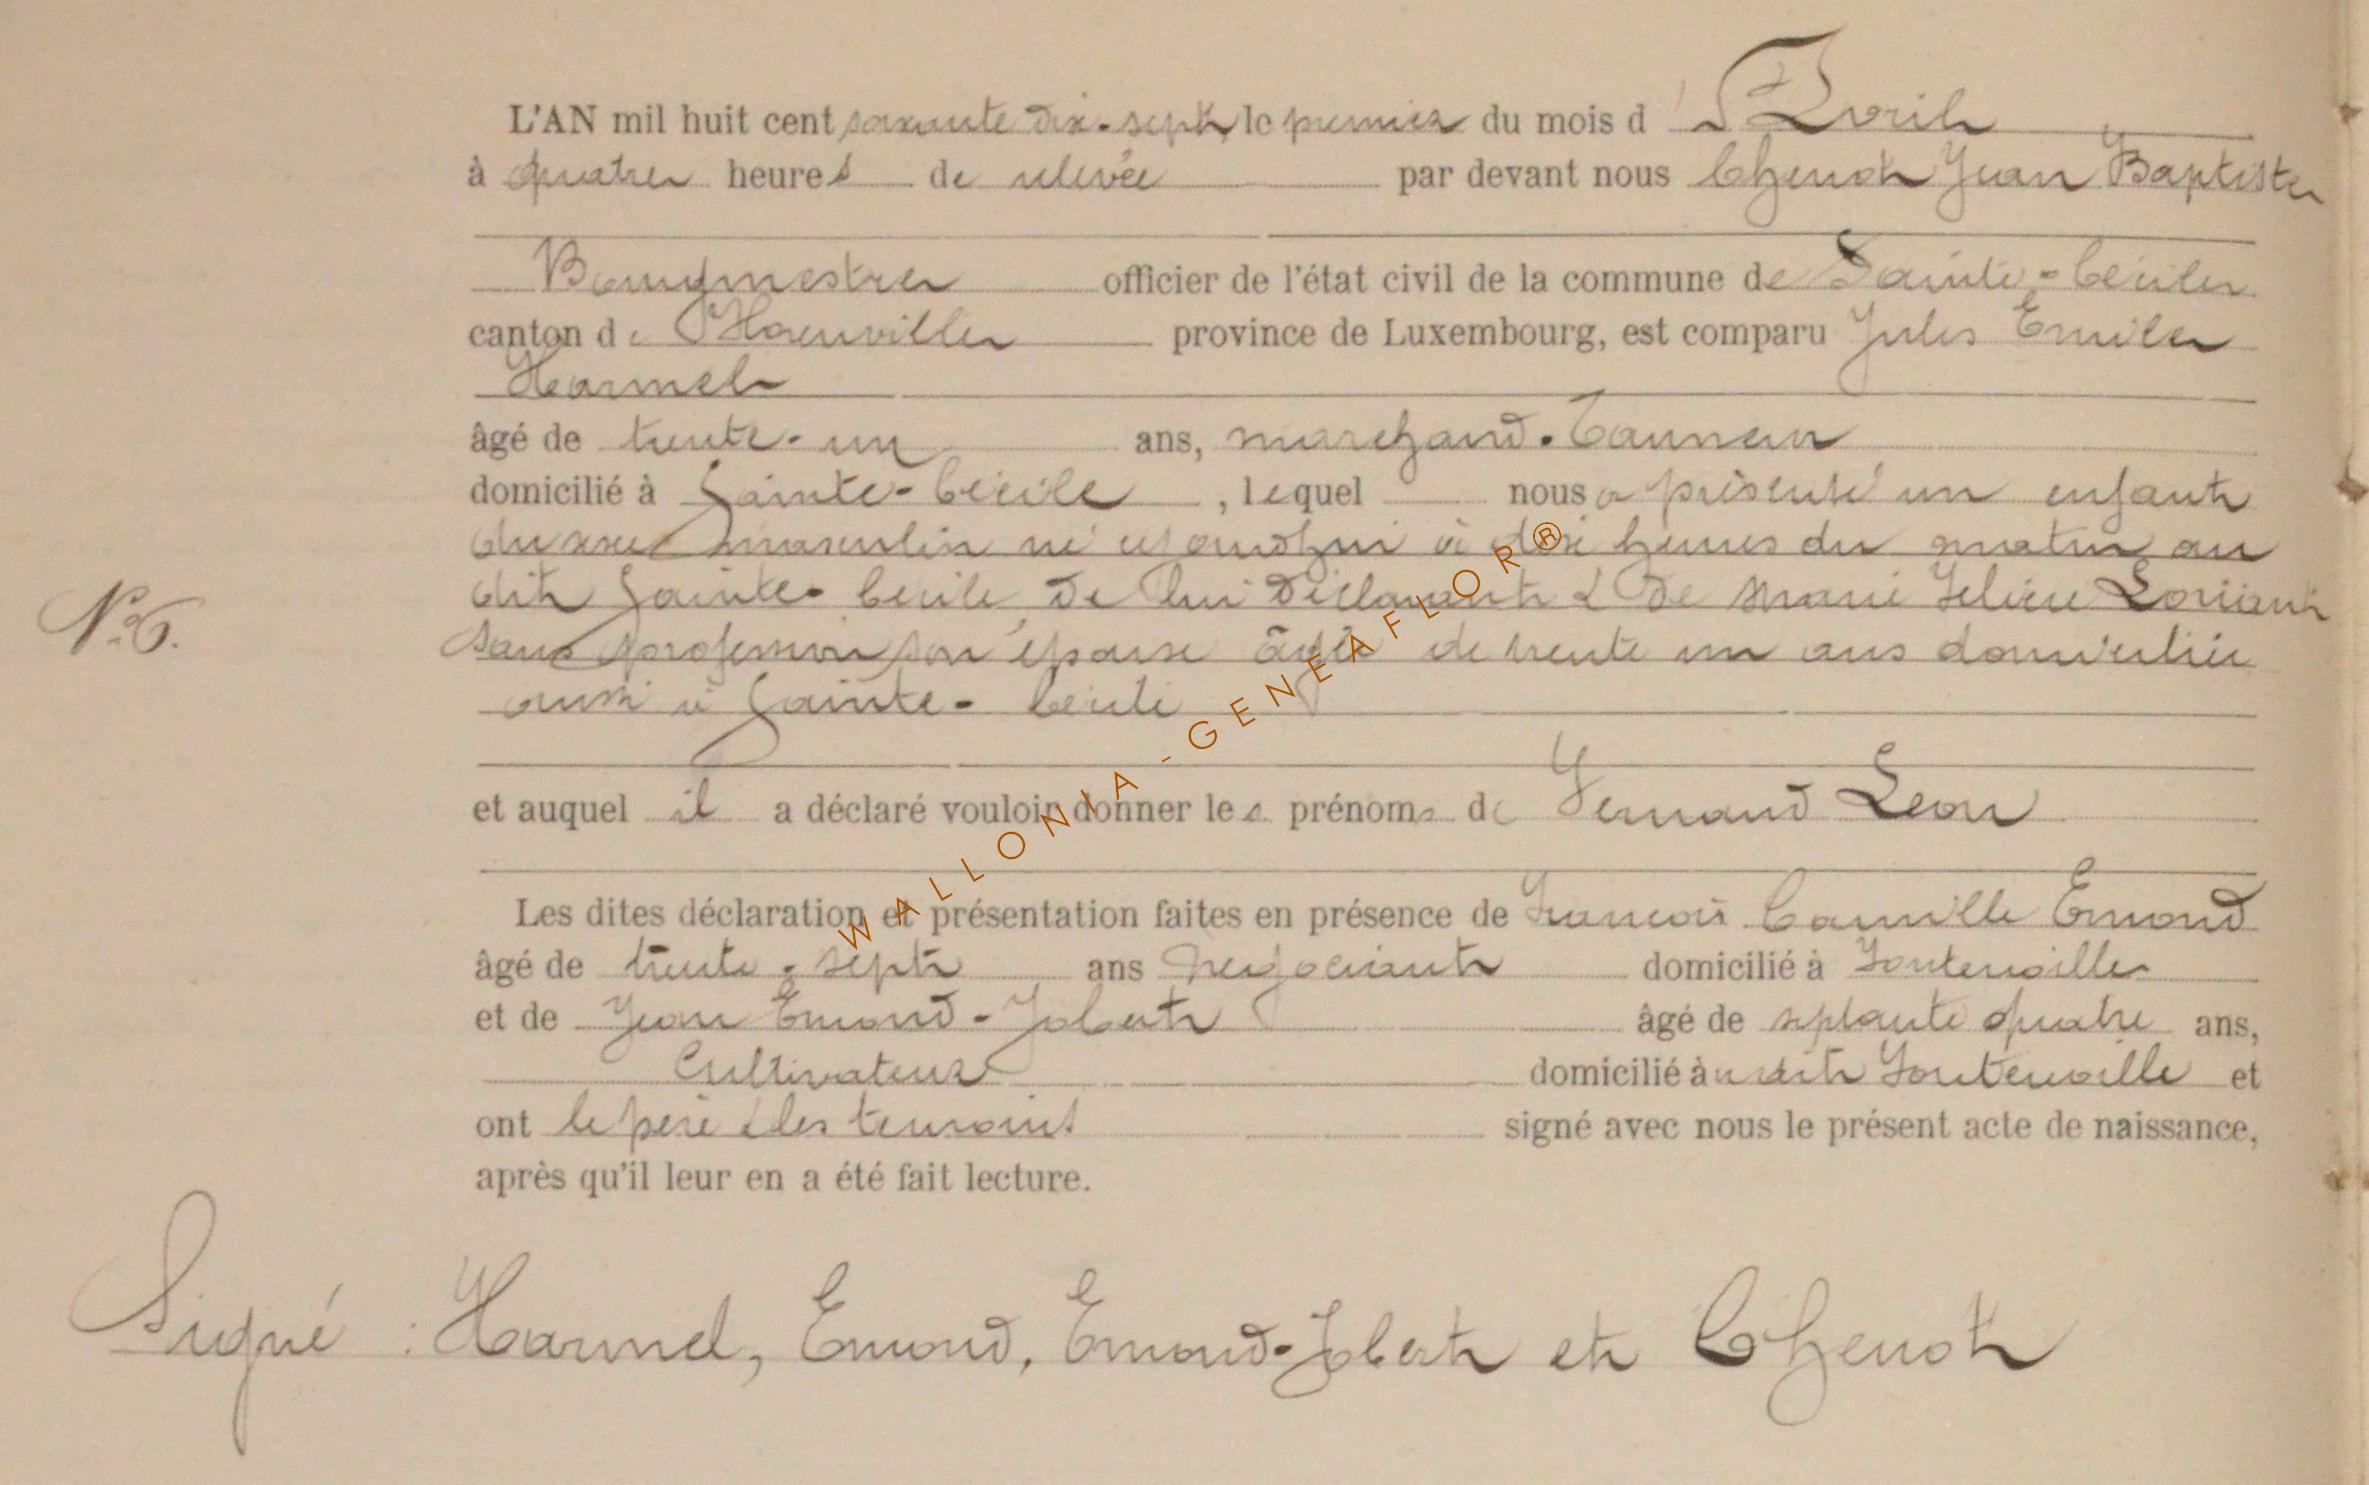 L'AN mil huit cent soixante dix-sept, le premier du mois d'Avril
à quatre heures de relevée par devant nous Chenot Jean Baptiste
Bourgmestre officier de l'état civil de la commune de Sainte-Cécile
canton de Florenville province de Luxembourg, est comparu Jules Emile
Harmel
âgé de trente-un ans, marchand-Tanneur
domicilié à Sainte-Cécile, lequel nous a présenté un enfant
du sexe masculin né aujourd'hui à dix heures du matin au
dit Sainte-Cécile, de lui déclarant & de Marie Loriant
N°6.
sans profession son épouse âgée de trente un ans domiciliée
aussi à Sainte-Cécile
et auquel il a déclaré vouloir donner les prénoms de Fernand Leon
Les dites déclaration et présentation faites en présence de Francois Camille Emond
âgé de trente-sept ans negociant domicilié à Fontenoille
et de Jean Emond-Jobert âgé de septante quatre ans,
Cultivateur domicilié à udit Fontenoille et
ont le père & les temoins signé avec nous le présent acte de naissance,
après qu'il leur en a été fait lecture.
Signé : Harmel, Emond, Emond-Jobert et Chenot
WALLONIA-GENEAFLOR®